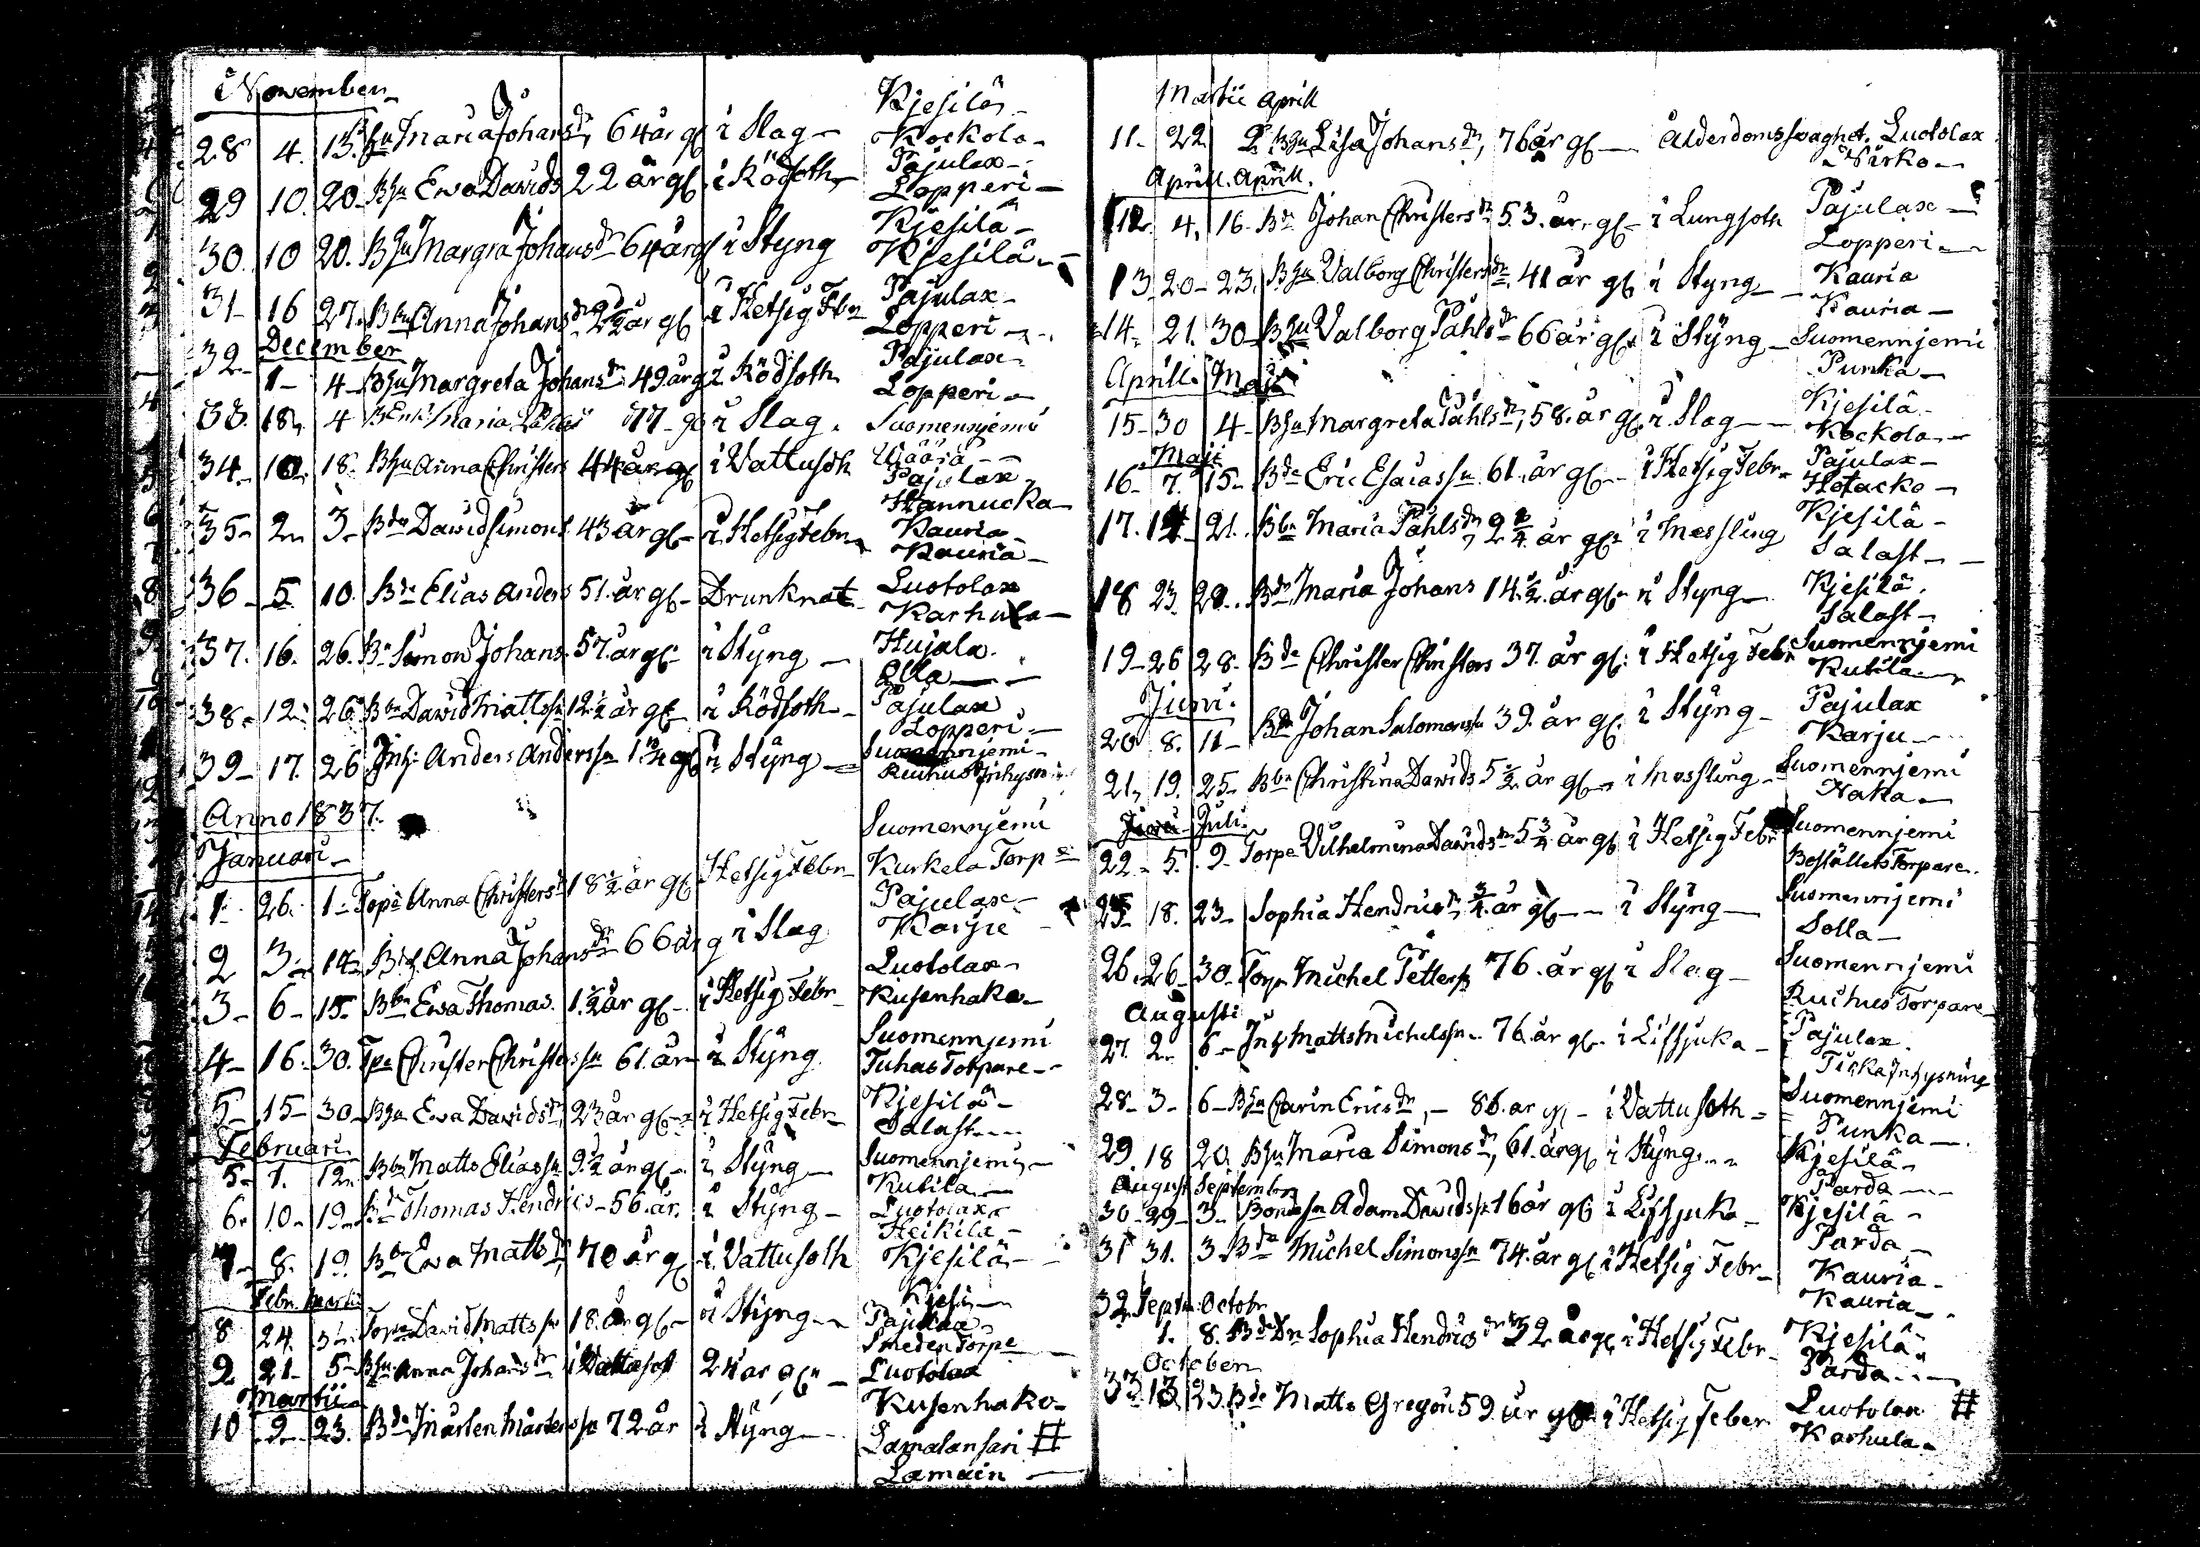 November
28 4. 13. Bhu Maria Johansdr, 64 år gl i Slag - Kjesilä - Kockola -
29 10. 20. Bhu Ewa Davids 22 år gl. i Rödsoth - Pajulax - Lopperi -
30. 10 20. Bhu Margra Johansdr 64 år gl i Styng Kjesilä - Kjesilä -
31 - 16 27. Bbn Anna Johansdr 2 1/2 år gl i Hetsig Fbr Pajulax - Lopperi -
December
32 - 1 - 4 - Bhu Margreta Johansdr 49 år g i Rödsoth Pajulax - Lopperi -
33. 18. 4 Maria 77 - g i Slag. Suomennjemi
34 - 10. 18. Bhu Anna Christers 44 år gl i Vattusoth Pajulax Hannucka -
35 - 2 - 3 - Bde David Simons 43 år gl - i Hetsig Febr - Kauria - Kauria -
36 - 5. 10. Bde Elias Anders 51. år gl - Drunknat Luotolax Karhula -
37. 16. 26. Bde Simon Johans 57. år gl - i Styng - Hujala. Olla -
38 - 12 - 26. Bbn David Mattssn 12 1/2 år gl - i Rödsoth - Pajulax Lopperi -
39 - 17. 26 Inh: Anders Anderssn gl i Styng - Suomennjemi - Ruthus Inhysni
Anno 1837.
Januari -
1 - 26. 1 - Torpe Anna Christersdr 18 1/2 år gl Hetsig Febr - Suomennjemi Kurkela Torp
2 3 - 14 - Anna Johansdr 66 år g i Slag Pajulax - Karjue -
3 - 6 - 15 - Bbn Ewa Thomas. 1. 1/2 år gl - i Hetsig Febr - Luotolax - Kusenhako -
4 - 16. 30. Tpe Christer Christerssn 61. år - i Styng. Suomennjemi Tuhas Torpare -
5 - 15 - 30 - Bhu Ewa Davidsdr, 23 år gl - i Hetsig Febr - Kjesilä - Salast -
Februari.
5 - 1. 12 - Bbn Matts Eliassn 9 1/2 år gl - i Styng - Suomennjemi - Kutila -
6 - 10 - 19 - Bde Thomas Hendrics - 56. år. i Styng - Luotolax Heikilä -
7 - 8. 19. Ewa Mattsdr, 70 år gl i Vattusoth Kjesilä - Kjesi -
Febr. Martii
8 24. 5 - Torpe David Mattssn 18. år gl - i Styng - Pajulax - Smeden Torpe
9 21 - 5 - Bhu Anna Johansdr i Vattusoth 24 år gl - Luotolax Kusenhako -
Martii -
10 2 - 23. Bde Mårten Mårtenssn 72 år i Styng - Lamalansari # Lamain -
Martii Aprill
11 - 22 2. Bhu Lisa Johansdr, 76 år gl - Ålderdomssvaghet. Luotolax Nirko -
Aprill. Aprill.
12. 4. 16 - Bde Johan Christerssn 53. år. gl - i Lungsoth Pajulax - Lopperi -
13 - 20 - 23. Bhu Valborg Christersdr. 41 år gl i Styng - Kauria Kauria -
14 - 21. 30 - Bhu Valborg Påhlsdr 66 år gl. i Styng - Suomennjemi Punka -
Aprill. Maji
15 - 30 4 - Bhu Margreta Påhlsdr, 58. år gl. i Slag - Kjesilä - Kockola -
Maji
16 - 7. 15 - Bde Eric Esaiassn 61. år gl - i Hetsig Febr - Pajulax - Hotacko -
17. 14 - 21. Bbn Maria Påhlsdr, år gl - i Messling Kjesilä - Salast -
18 23. 29. Maria Johans 14 1/2. år gl - i Styng - Kjesilä. Salast -
19 - 26 28 - Bde Christer Christers 37. år gl: i Hetsig Febr Suomennjemi Kutila -
Juni.
20 8. 11 - Bde Johan Salomonssn 39. år gl. i Styng - Pajulax Karju -
21 - 19. 25 - Bbn Christina Davids 5 1/2 år gl - i Messling - Suomennjemi Haka -
Juni - Juli.
22 - 5. 9 - Torpe Vilhelmina Davidsdr 5 3/4 år gl i Hetsig Febr Suomennjemi Beställets Torpare.
25 - 18. 23 - Sophia Hendricsdr, 3/4 år gl - i Styng - Suomennjemi Solla -
26. 26 - 30 - Torp. Michel Petterss 76. år gl i Slag - Suomennjemi Ruthus Torpare -
Augusti
27. 2 - 6 - Inh Matts Michelssn - 76. år gl - i Lifsjuka - Pajulax. Ticka Inhysning
28 - 3 - 6 - Bhu Carin Ericsdr, - 86. år gl - i Vattusoth - Suomennjemi Punka -
29. 18 20. Bhu Maria Simonsdr, 61. år gl i Styng - Kjesilä - Parda -
August September
30 - 29 - 3 - Bondesn Adam Davidssn 16 år gl i Lifsjuka - Kjesilä - Parda -
31 31. 3 Bde Michel Simonssn 74. år gl i Hetsig Febr - Kauria - Kauria -
32 Septr. Octobr
1. 8. Sophia Hendricsdr 32 år gl i Hetsig Febr - Kjesilä - Parda -
October
33 13 23. Bde Matts Gregori 59. år gl i Hetsig Feber Luotolax # Karhula -